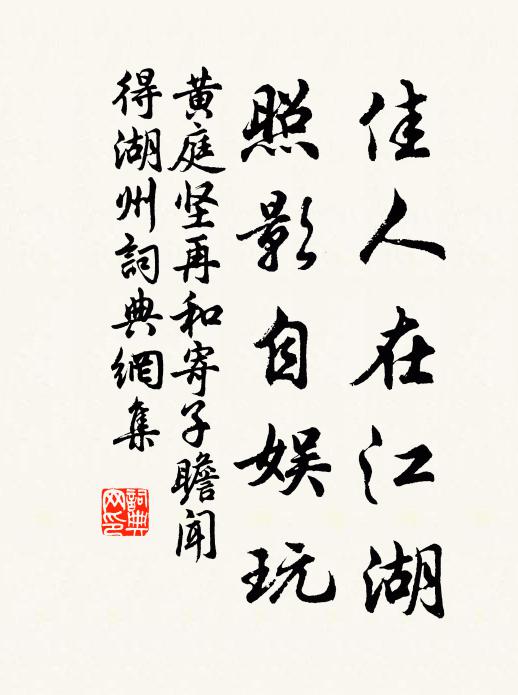 佳人在江湖
照影自娱玩
黄庭坚再和寄子瞻闻
得湖州詞典網集
詞典
网印